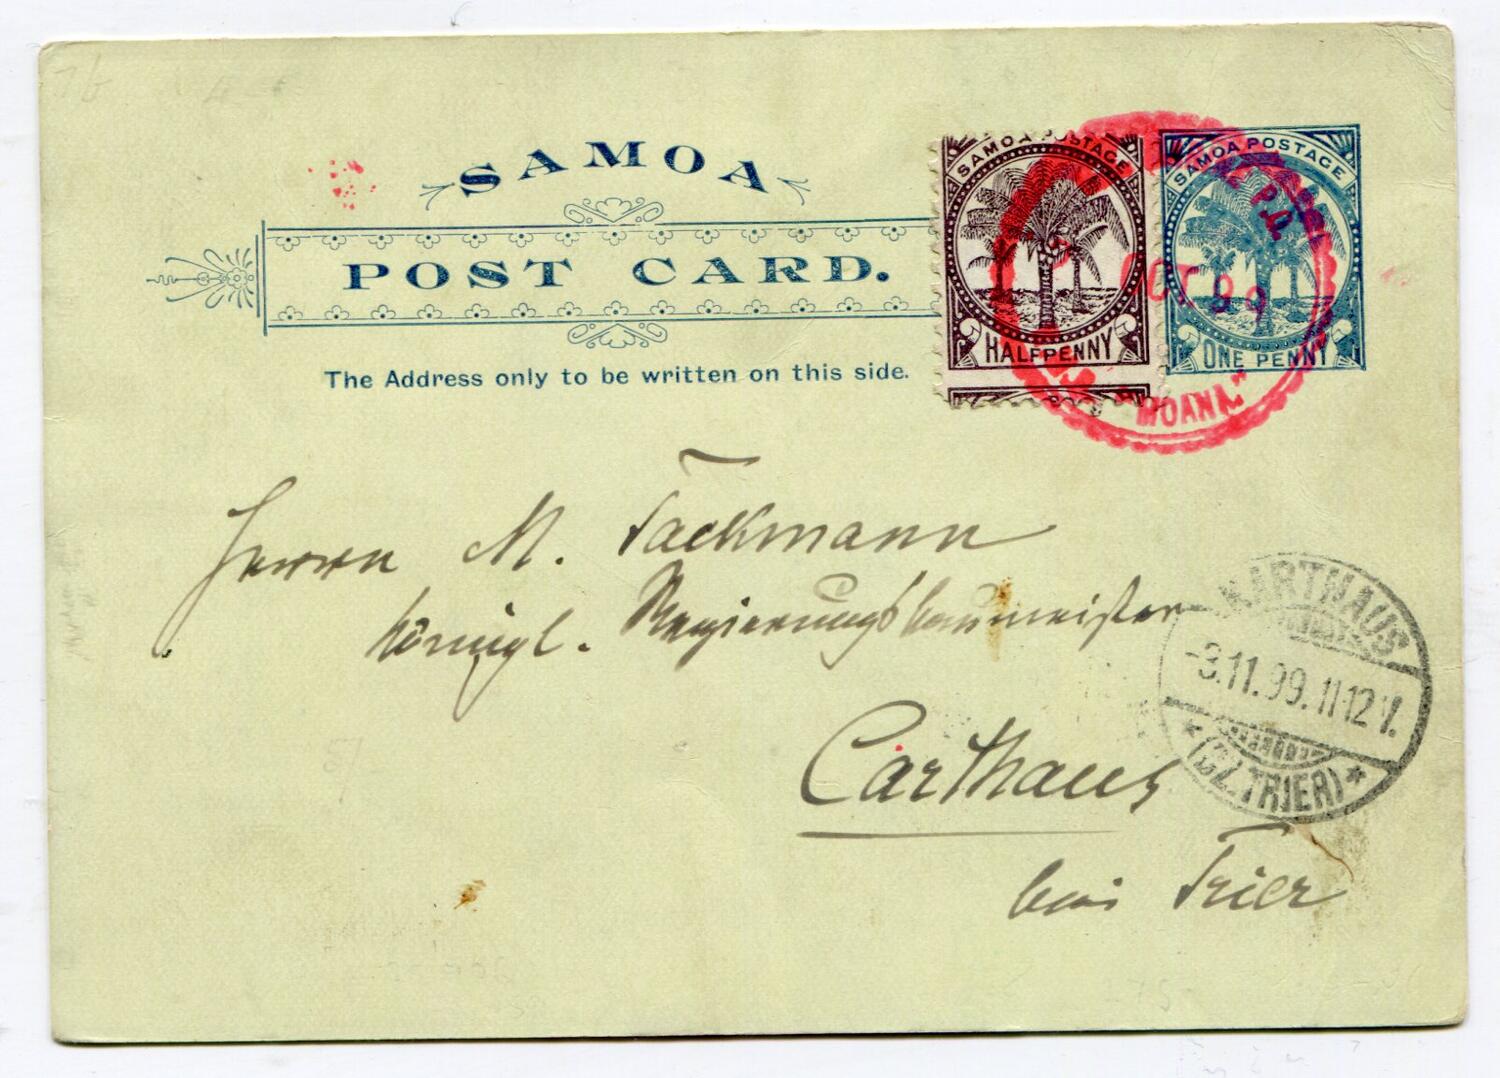 SAMOA
POST CARD.
The Address only to be written on this side.
SAMOA POSTAGE
HALFPENNY
SAMOA POSTAGE
ONE PENNY
P.O.
OCT 99
"MOANA"
Herrn M. Tackmann
Königl. Regierungsbaumeister
Carthaus
bei Trier
KARTHAUS
-3.11.99.11-12V.
* (BZ.TRIER) *